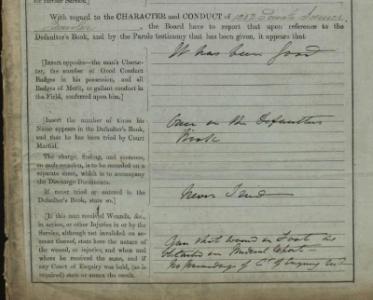 With regard to the CHARACTER and CONDUCT of Private
, the Board have to report that upon reference to the
Defaulter's Book, and by the Parole testimony that has been given, it appears that
It has been good
[Insert opposite—the man's Character,
the number of Good Conduct
Badges in his possession, and all
Badges of Merit, or gallant conduct in
the Field, conferred upon him.]
[Insert the number of times his
Name appears in the Defaulter's Book,
and that he has been tried by Court
Martial.
Once in the Defaulters
Book
The charge, finding, and sentence,
on each occasion, is to be recorded on a
separate sheet, which is to accompany
the Discharge Documents.
If never tried or entered in the
Defaulter's Book, state so.]
Never Tried
[If this man received Wounds, &c.,
in action, or other Injuries in or by the
Service, although not invalided on account
thereof, state here the nature of
the wound, or injuries, and when and
where he received the same, and if
any Court of Enquiry was held, (as is
required) state or annex the result.
Gun shot wound in Foot as
detailed in Medical Report—
No Proceedings of Ct of Enquiry